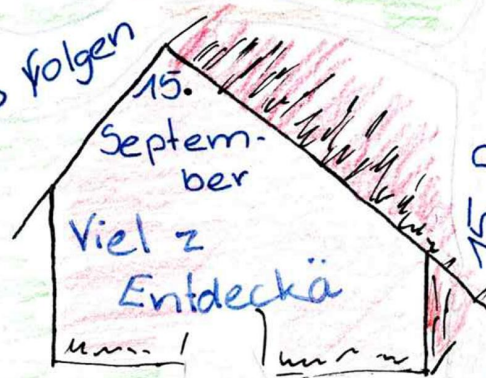 Folgen
15.
Septem-
ber
Viel z
Entdeckä
15.